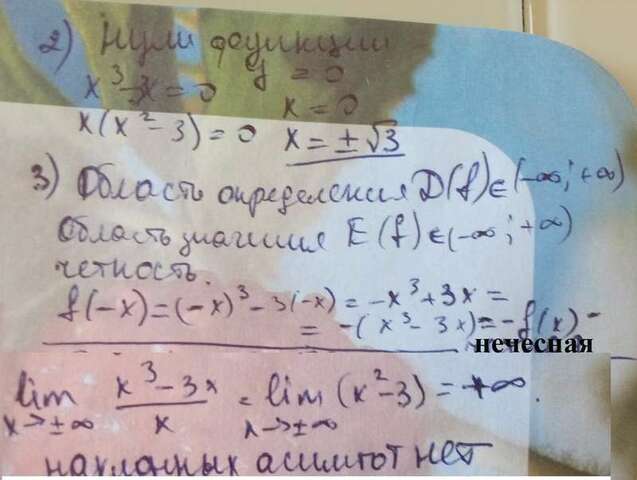 2) Нули функции
x³-3x=0 y=0
x(x²-3)=0 x=0
x=±√3
3) Область определения D(f)∈(-∞;+∞)
Область значения E(f)∈(-∞;+∞)
четность.
f(-x)=(-x)³-3(-x)=-x³+3x=
=-(x³-3x)=-f(x)-
нечесная
lim x→±∞ (x³-3x)/x = lim x→±∞ (x²-3)=+∞.
наклонных асимптот нет